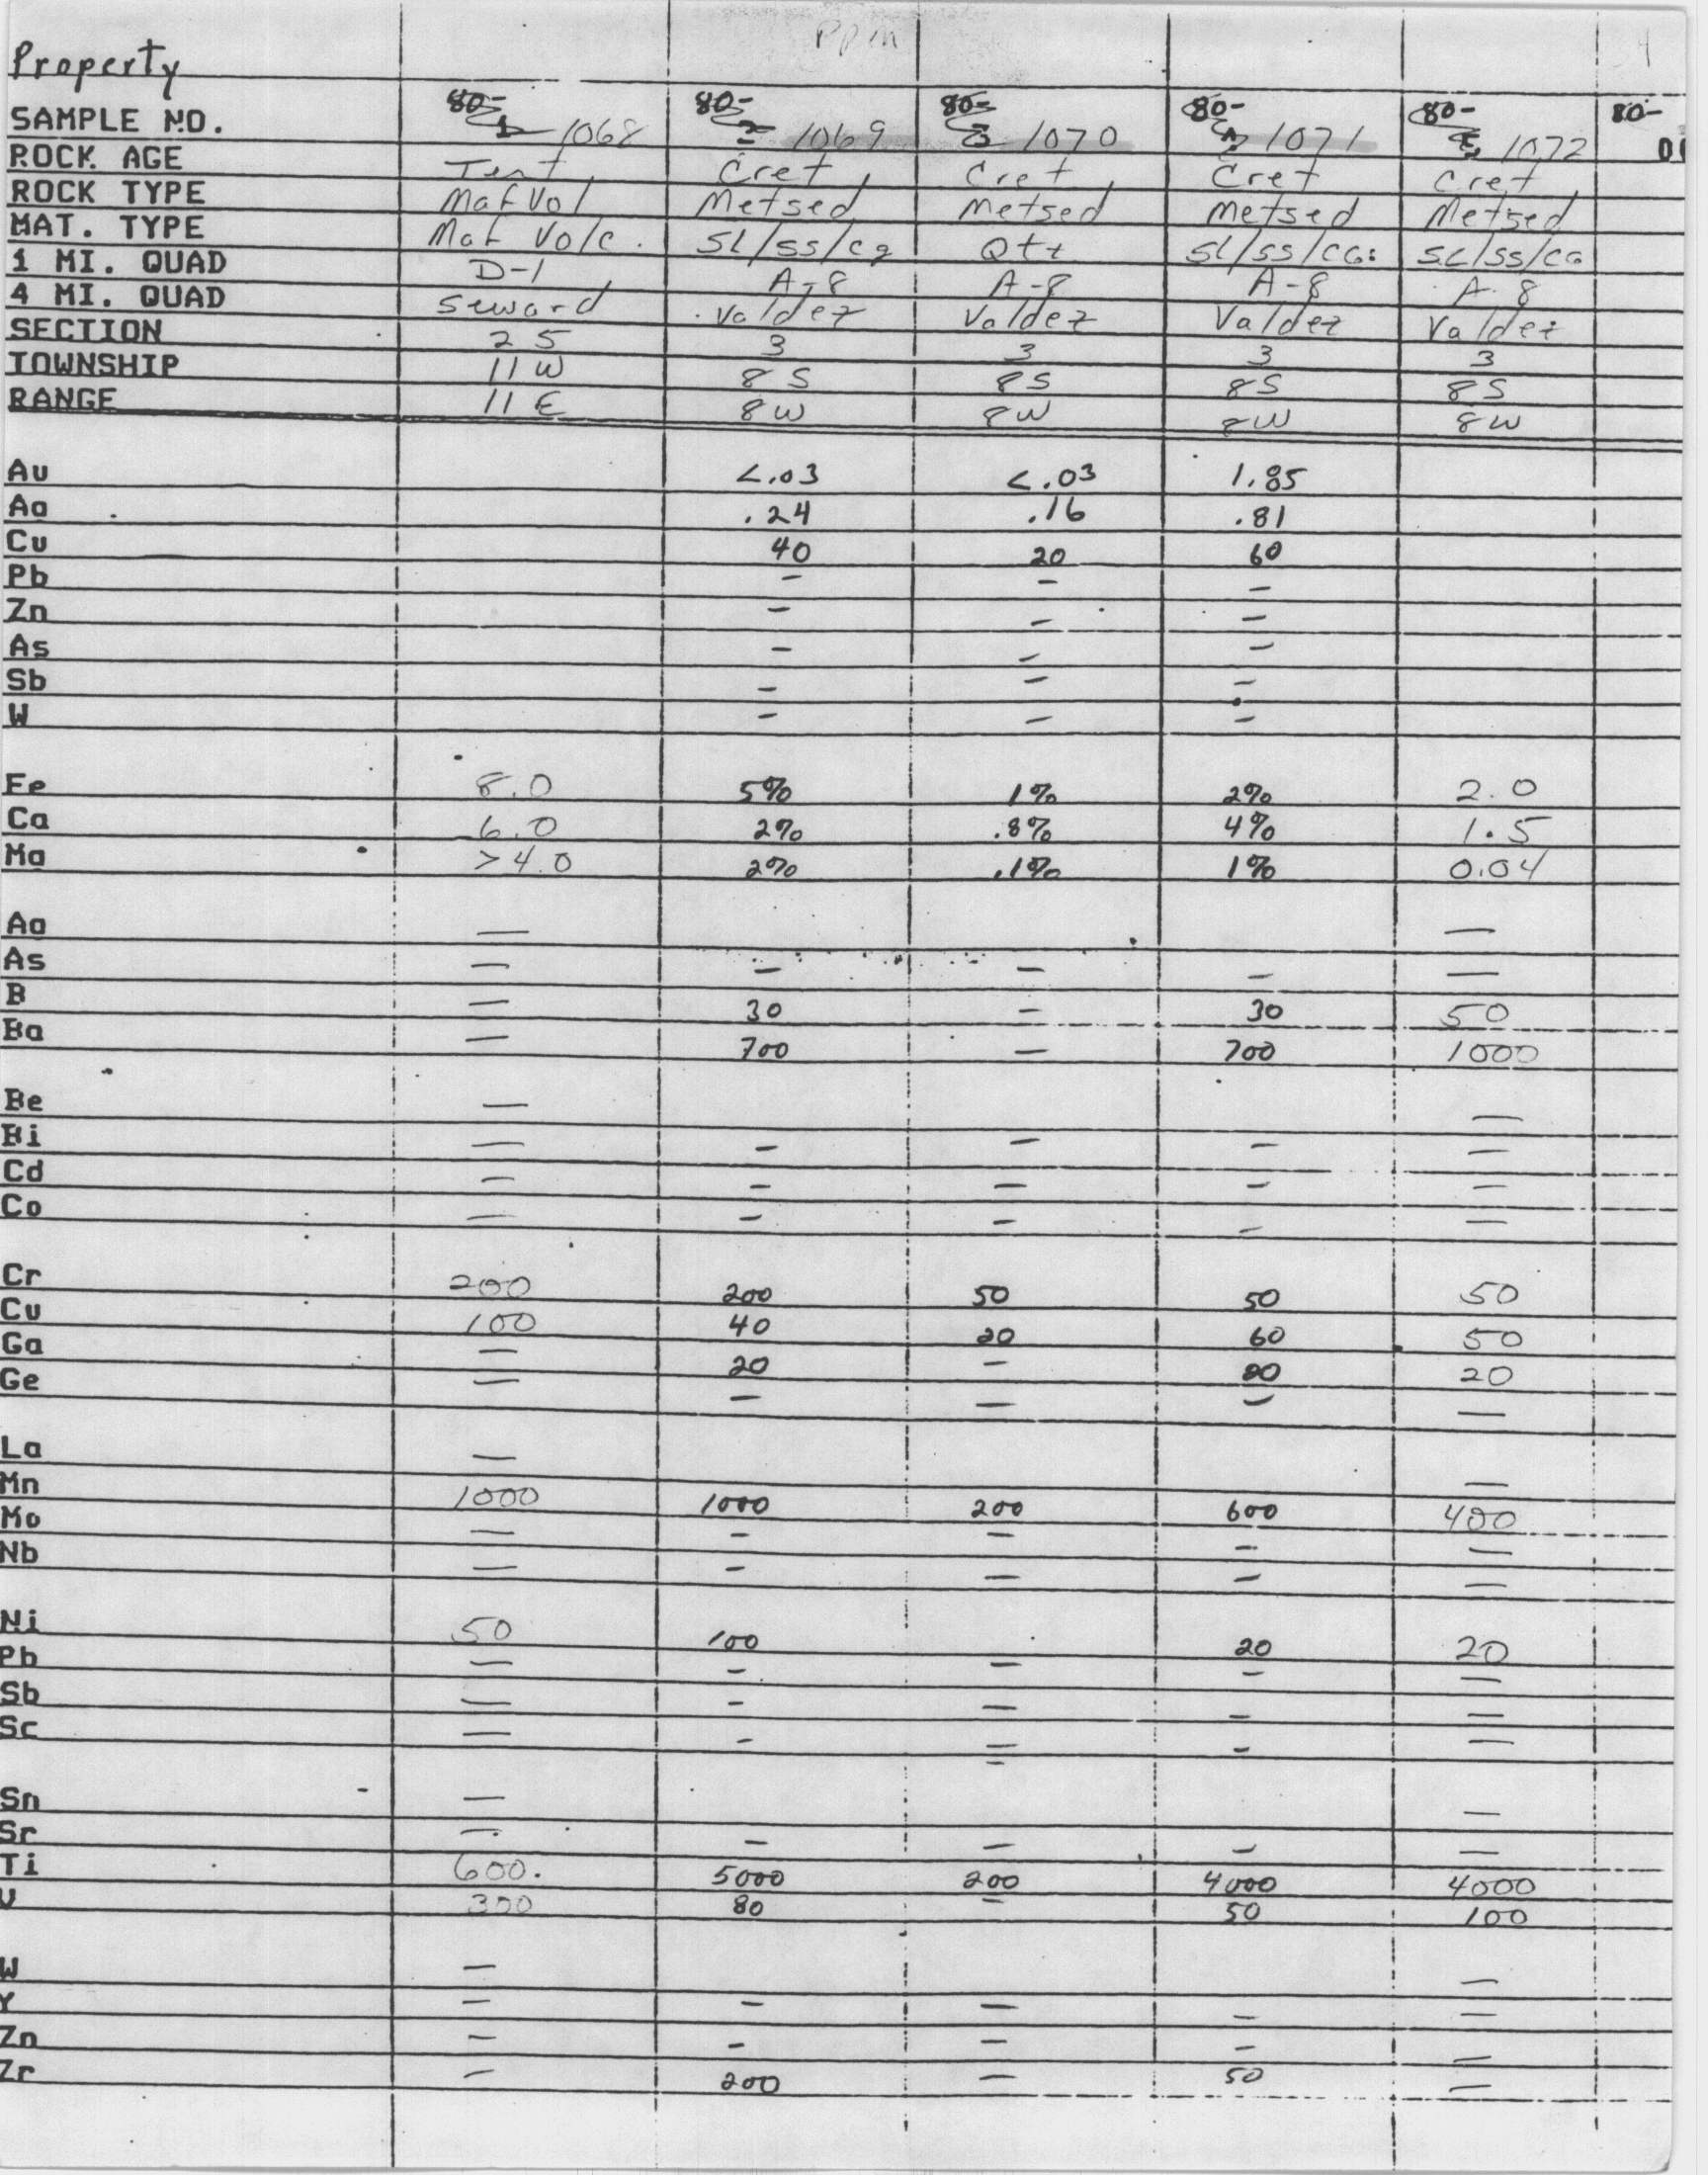 ppm
Property
SAMPLE NO. 80- 1068 80- 1069 80- 1070 80- 1071 80- 1072 80-
ROCK AGE Tert Cret Cret Cret Cret
ROCK TYPE Maf Vol Metsed Metsed Metsed Metsed
MAT. TYPE Maf Volc. SL/SS/cg Qtz SL/SS/CG. SL/SS/CG
1 MI. QUAD D-1 A-8 A-8 A-8 A-8
4 MI. QUAD Seward Valdez Valdez Valdez Valdez
SECTION 25 3 3 3 3
TOWNSHIP 11W 8S 8S 8S 8S
RANGE 11E 8W 8W 8W 8W
Au <.03 <.03 1.85
Ag .24 .16 .81
Cu 40 20 60
Pb - - -
Zn - - -
As - - -
Sb - - -
W - - -
Fe 8.0 5% 1% 2% 2.0
Ca 6.0 2% .8% 4% 1.5
Mg >4.0 2% .1% 1% 0.04
Ag - -
As - - - - -
B - 30 - 30 50
Ba - 700 - 700 1000
Be - -
Bi - - - - -
Cd - - - - -
Co - - - - -
Cr 200 200 50 50 50
Cu 100 40 20 60 50
Ga - 20 - 20 20
Ge - - - - -
La - -
Mn 1000 1000 200 600 400
Mo - - - - -
Nb - - - - -
Ni 50 100 - 20 20
Pb - - - - -
Sb - - - - -
Sc - - - - -
Sn - -
Sr - - - - -
Ti 600. 5000 200 4000 4000
V 300 80 - 50 100
W - -
Y - - - - -
Zn - - - - -
Zr - 200 - 50 -